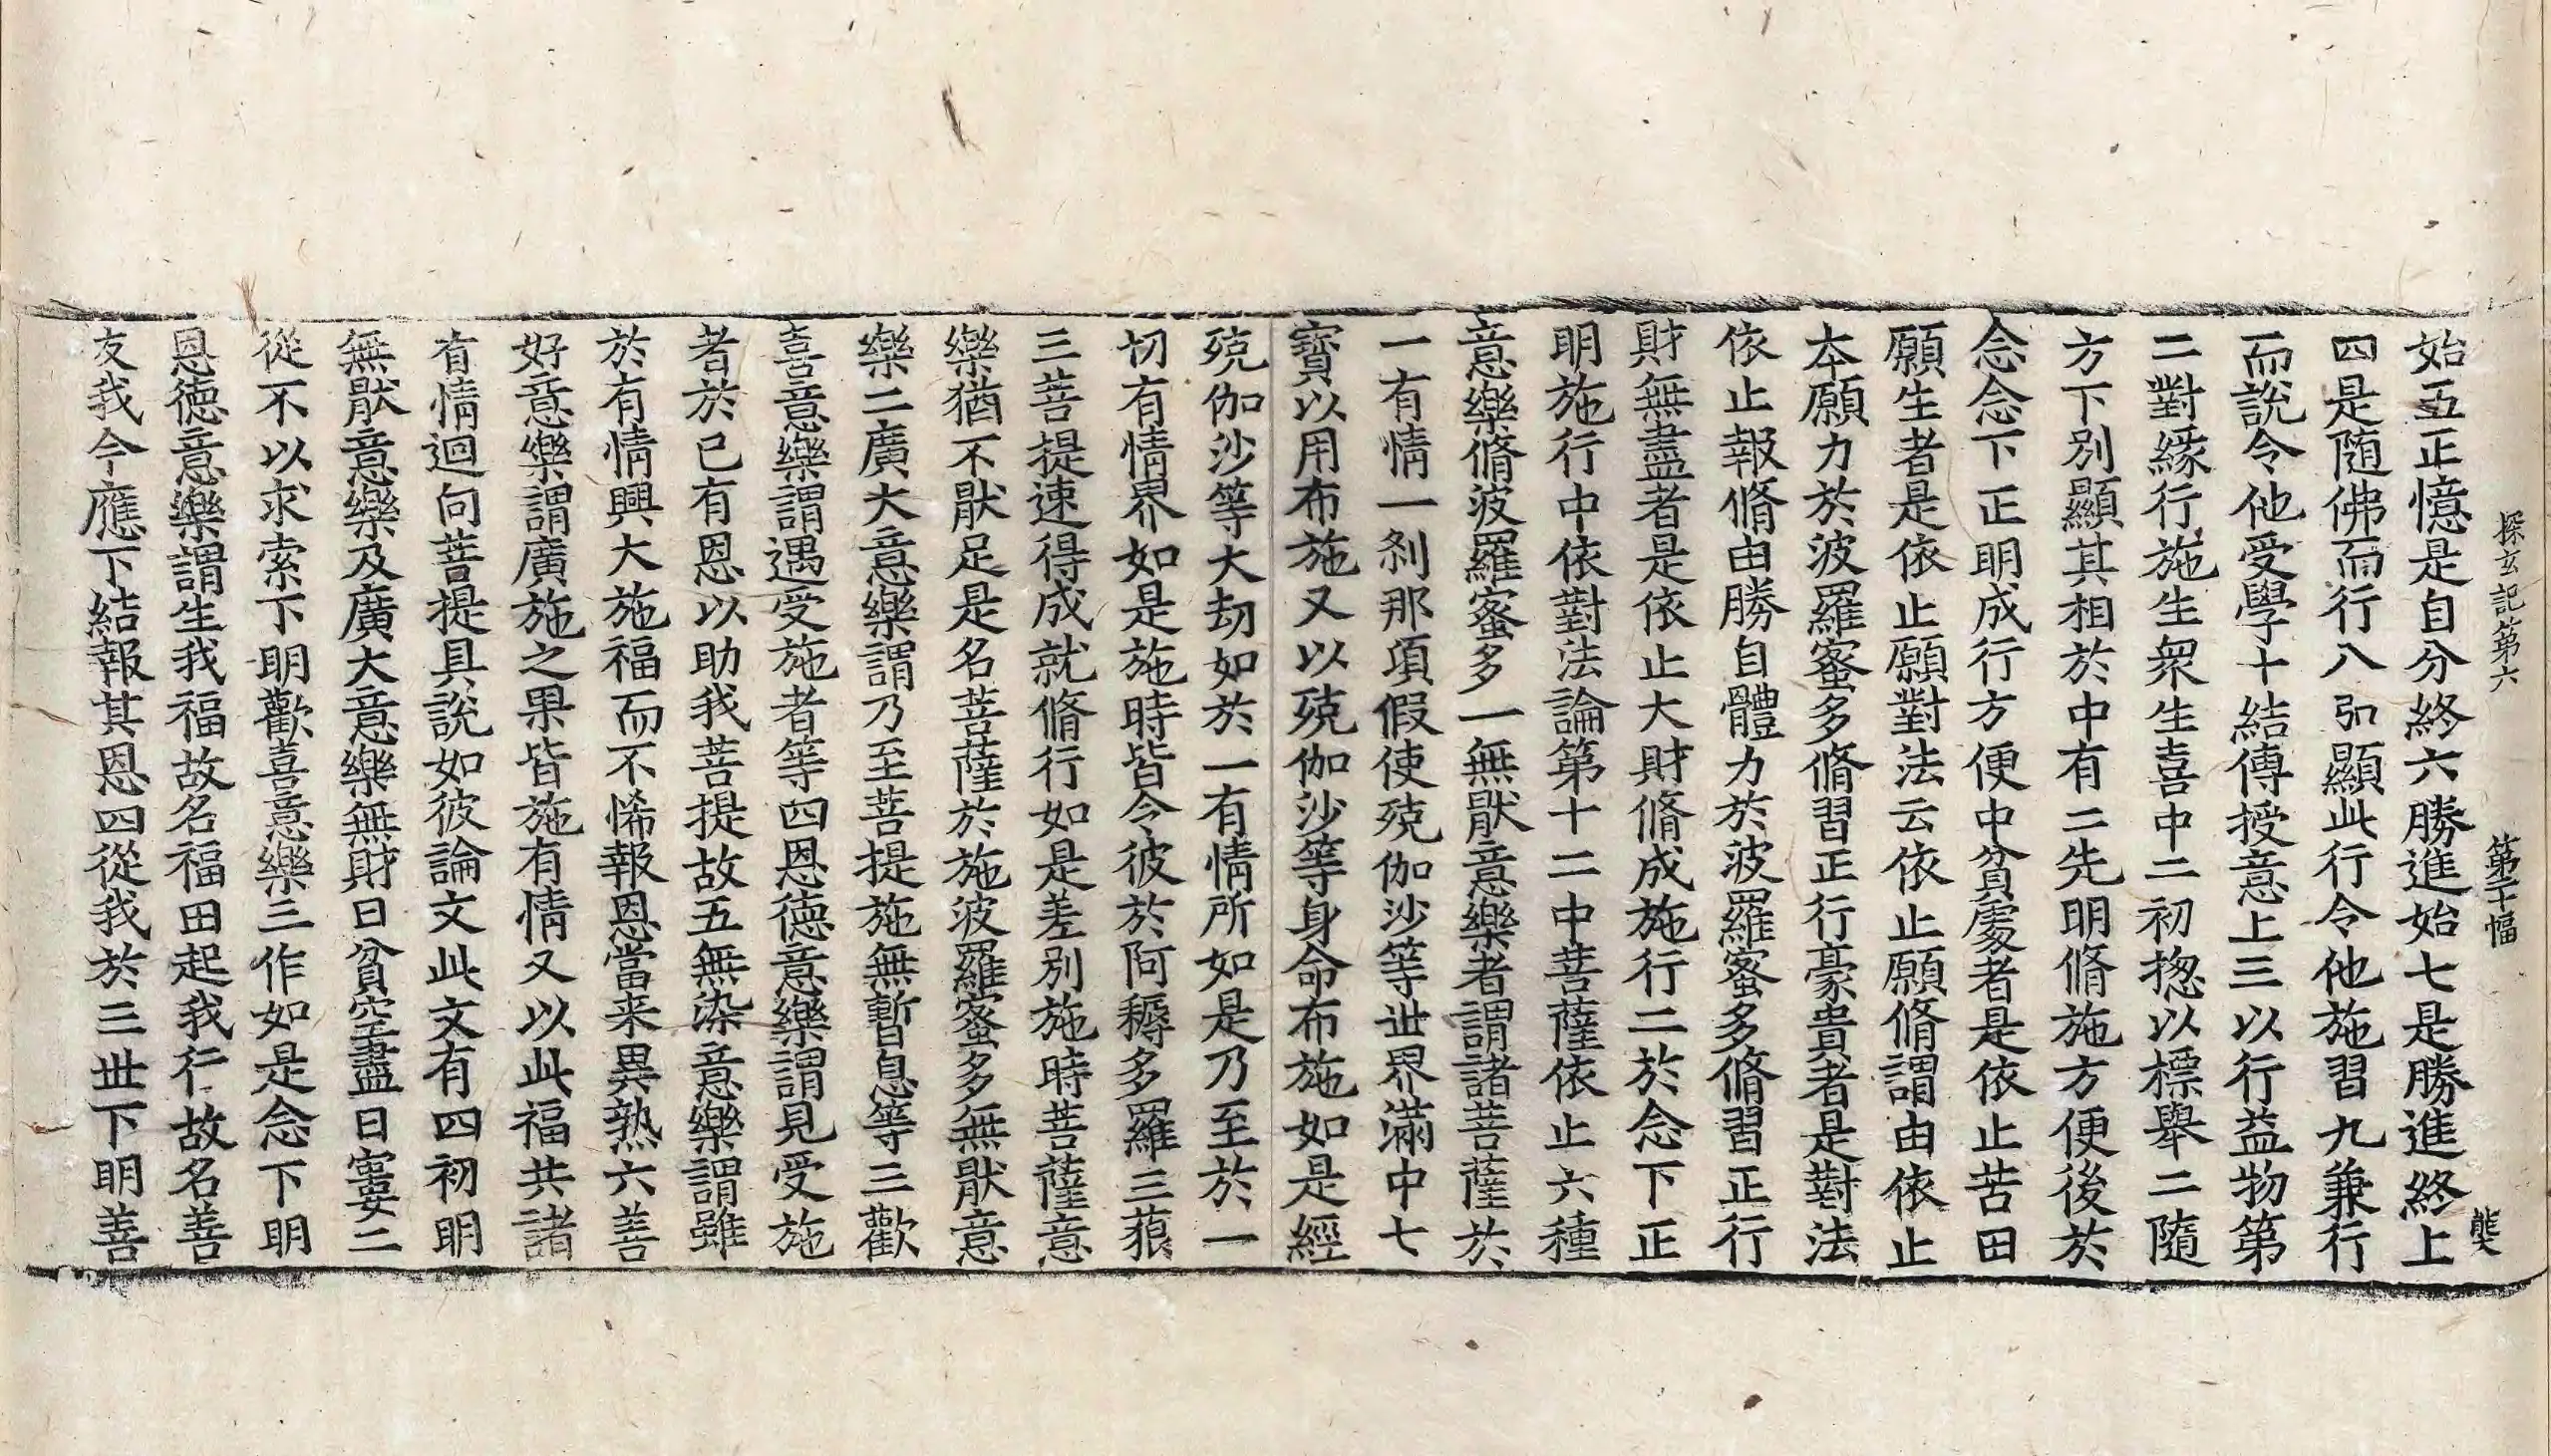 探玄記第六　第二十幅　弊
始五正憶是自分終六勝進始七是勝進終上
四是随佛而行八引顯此行令他施習九兼行
而說令他受學十結傳授意上三以行益物第
二對緣行施生衆生喜中二初揔以標舉二隨
方下別顯其相於中有二先明脩施方便後於
念念下正明成行方便中貧處者是依止苦田
願生者是依止願對法云依止願脩謂由依止
本願力於波羅蜜多脩習正行豪貴者是對法
依止報脩由勝自體力於波羅蜜多脩習正行
財無盡者是依止大財脩成施行二於念下正
明施行中依對法論第十二中菩薩依止六種
意樂脩波羅蜜多一無猒意樂者謂諸菩薩於
一有情一刹那項假使殑伽沙等世界滿中七
寶以用布施又以殑伽沙等身命布施如是經
殑伽沙等大劫如於一有情所如是乃至於一
切有情界如是施時皆令彼於阿耨多羅三藐
三菩提速得成就脩行如是差別施時菩薩意
樂猶不猒足是名菩薩於施波羅蜜多無猒意
樂二廣大意樂謂乃至菩提施無暫息等三歡
喜意樂謂遇受施者等四恩德意樂謂見受施
者於己有恩以助我菩提故五無染意樂謂雖
於有情興大施福而不悕報恩當来異熟六善
好意樂謂廣施之果皆施有情又以此福共諸
有情迴向菩提具說如彼論文此文有四初明
無猒意樂及廣大意樂無財曰貧空盡曰寠二
從不以求索下明歡喜意樂三作如是念下明
恩德意樂謂生我福故名福田起我行故名善
友我今應下結報其恩四從我於三世下明善